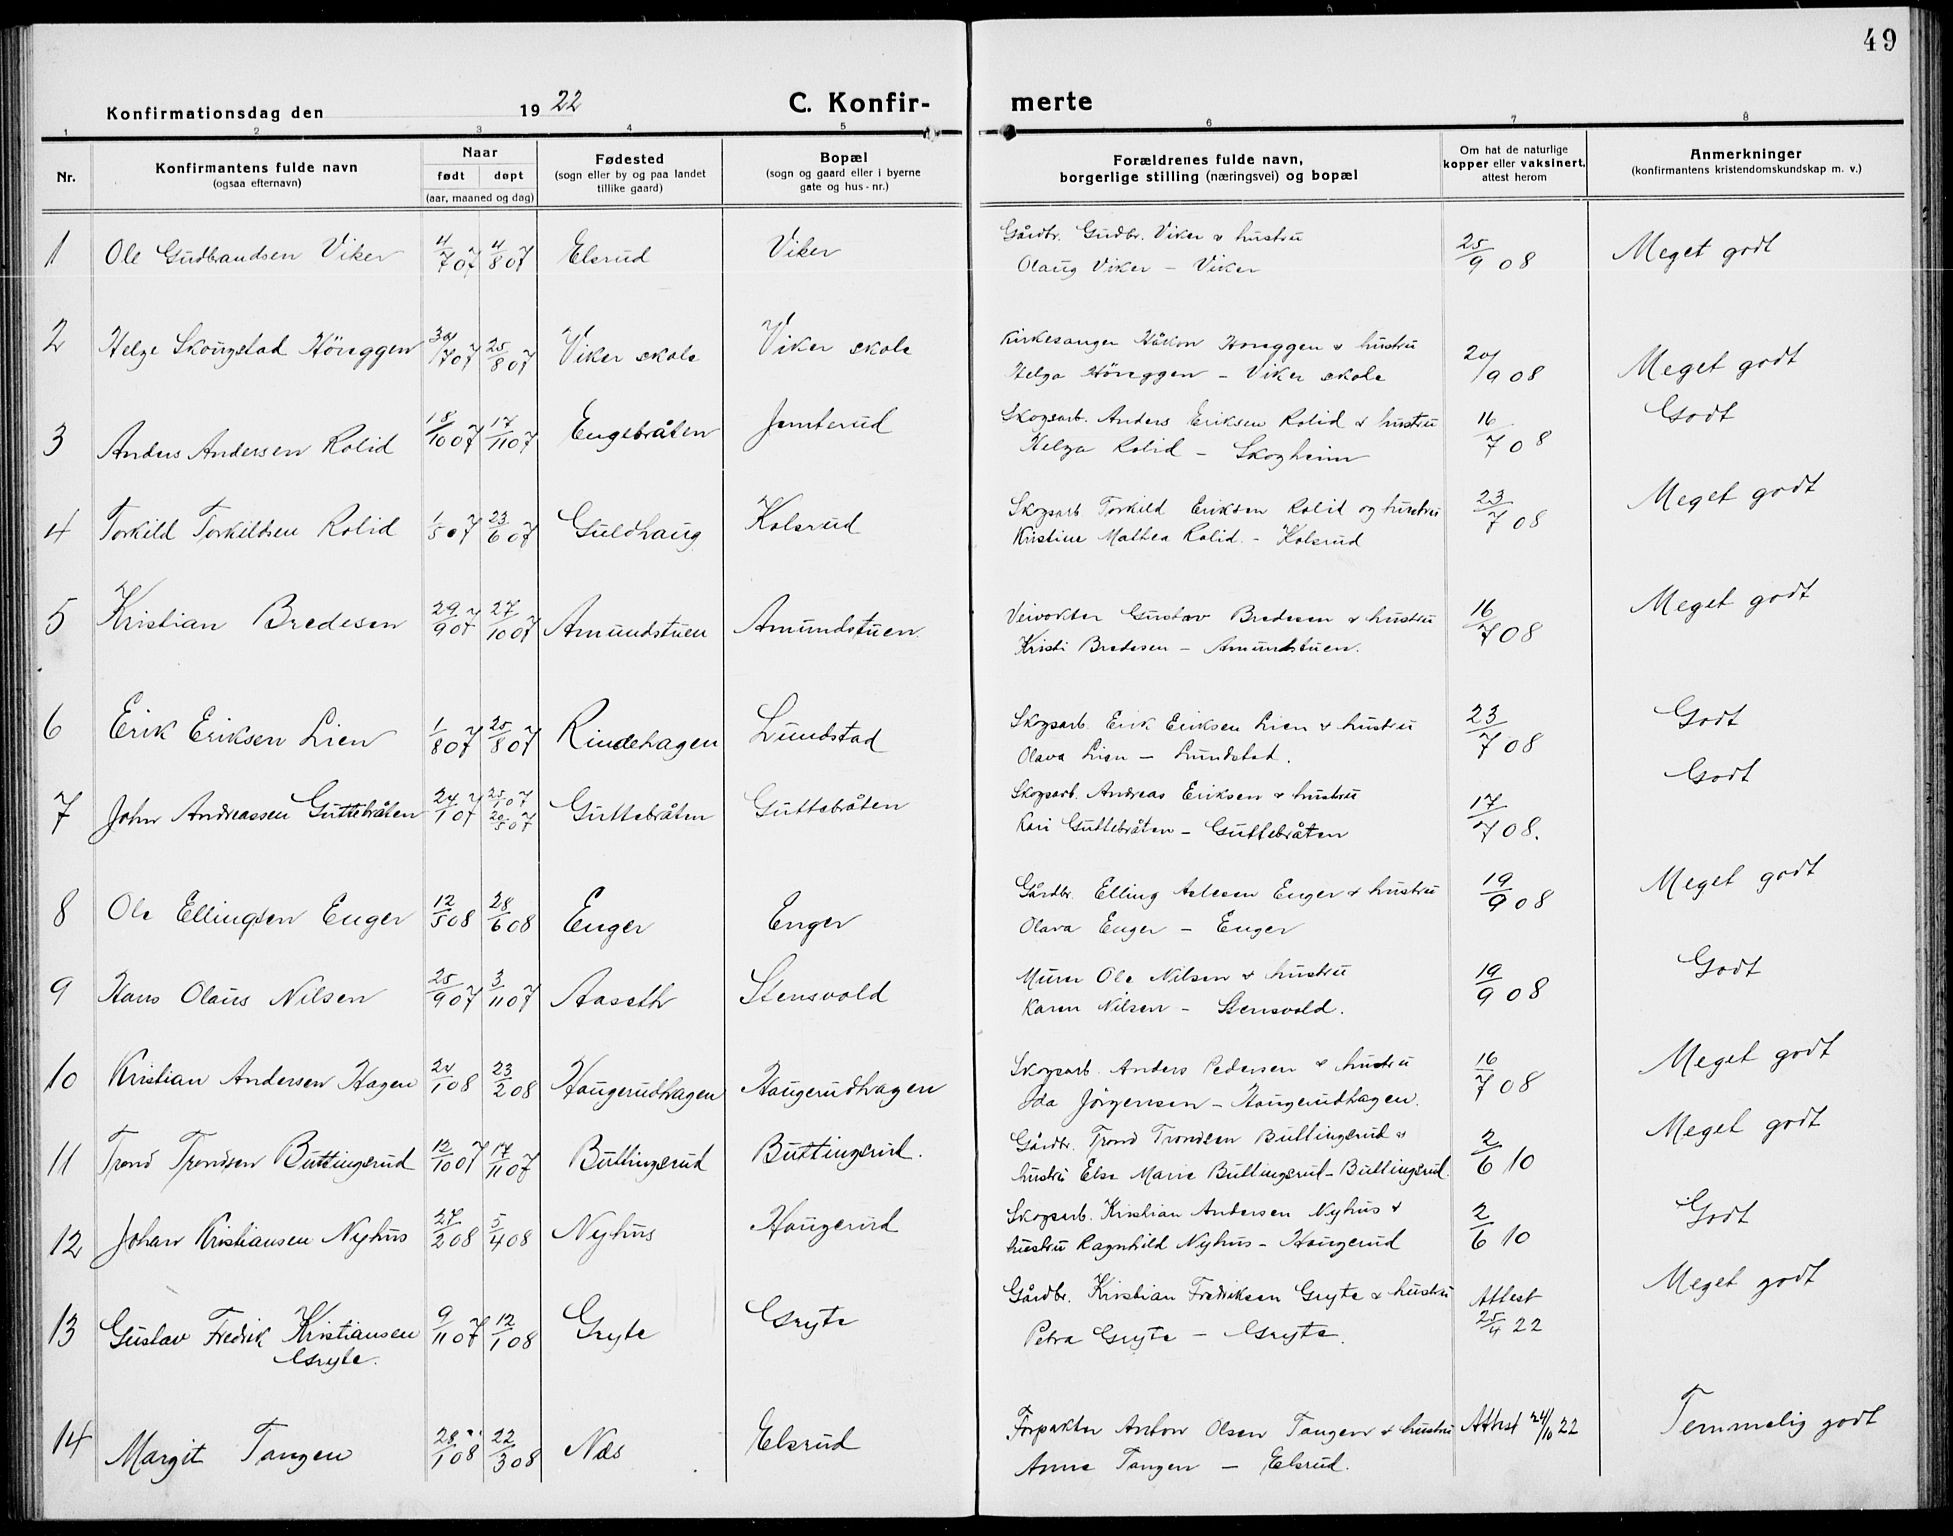 49
Konfirmationsdag den 19 22 C. Konfir- merte
1 2 3 4 5 6 7 8
Nr. Konfirmantens fulde navn (ogsaa efternavn) Naar født døpt (aar, maaned og dag) Fødested (sogn eller by og paa landet tillike gaard) Bopæl (sogn og gaard eller i byerne gate og hus-nr.) Forældrenes fulde navn, borgerlige stilling (næringsvei) og bopæl Om hat de naturlige kopper eller vaksinert, attest herom Anmerkninger (konfirmantens kristendomskundskap m. v.)
1 Ole Gudbrandsen Viker 4/7 07 4/8 07 Elsrud Viker Gårdbr. Gudbr. Viker & hustru 25/9 08 Meget godt
Olaug Viker – Viker
2 Helge Skougstad Höveggen /7 07 25/8 07 Viker skole Viker skole Kirkesanger Håkon Höveggen & hustru 20/9 08 Meget godt
Helga Höveggen – Viker skole
3 Anders Andersen Rolid 18/10 07 17/11 07 Engebråten Jemterud Skogsarb. Anders Eriksen Rolid & hustru 16/7 08 Godt
Helga Rolid – Skogheim
4 Torkild Torkildsen Rolid 1/5 07 23/6 07 Guldhaug Kolsrud Skogsarb Torkild Eriksen Rolid og hustru 23/7 08 Meget godt
Kristine Mathea Rolid. – Kolsrud
5 Kristian Bredesen 29/9 07 27/10 07 Amundstuen Amundstuen. Veivokter Gustav Bredesen & hustru 16/7 08 Meget godt
Kristi Bredesen – Amundstuen.
6 Erik Eriksen Lien 1/8 07 25/8 07 Rindehagen Lundstad Skogsarb Erik Eriksen Lien & hustru 23/7 08 Godt
Olava Lien – Lundstad.
7 John Andreassen Guttebråten 24/1 07 25/1 07 20/5 07 Guttebråten Guttebråten Skogsarb. Andreas Eriksen & hustru 17/7 08. Godt
Kari Guttebråten – Guttebråten
8 Ole Ellingsen Enger 12/5 08 28/6 08 Enger Enger Gårdbr. Elling Aslesen Enger & hustru 19/9 08 Meget godt
Olava Enger – Enger
9 Hans Olaus Nilsen 25/9 07 3/11 07 Aaseth Stensvold Murer Ole Nilsen & hustru 19/9 08 Godt
Karen Nilsen – Stensvold.
10 Kristian Andersen Hagen 20/1 08 23/2 08 Haugerudhagen Haugerudhagen Skogsarb. Anders Pedersen & hustru 16/7 08 Meget godt
Ida Jörgensen – Haugerudhagen.
11 Trond Trondsen Buttingsrud 12/10 07 17/11 07 Buttingsrud Buttingsrud. Gårdbr. Trond Trondsen Buttingsrud & 2/6 10 Meget godt
hustru Else Marie Buttingsrud – Buttingsrud.
12 Johan Kristiansen Nyhus 27/2 08 5/4 08 Nyhus Haugerud Skogsarb. Kristian Andersen Nyhus & 2/6 10 Godt
hustru Ragnhild Nyhus – Haugerud
13 Gustav Fredrik Kristiansen 9/11 07 12/1 08 Gryte Gryte Gårdbr. Kristian Fredriksen Gryte & hustru Attest 25/4 22 Meget godt
Gryte. Petra Gryte – Gryte.
14 Margit Tangen 28/1 08 22/3 08 Næs Elsrud Forpakter Anton Olsen Tangen & hustru Attest 24/10 22 Temmelig godt
Anne Tangen – Elsrud.